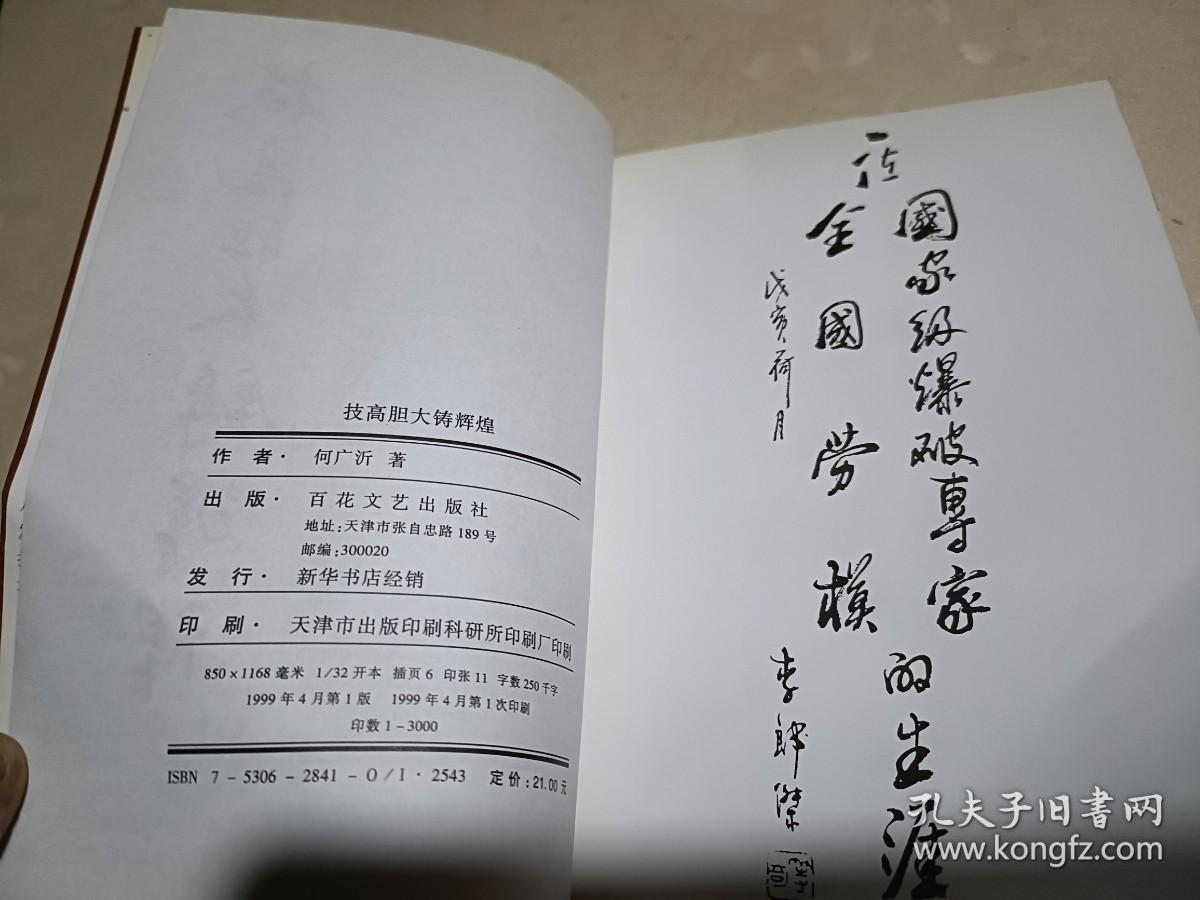 技高胆大铸辉煌
作 者· 何广沂 著
出 版· 百花文艺出版社
地址:天津市张自忠路189号
邮编:300020
发 行· 新华书店经销
印 刷· 天津市出版印刷科研所印刷厂印刷
850×1168毫米 1/32开本 插页6 印张11 字数250千字
1999年4月第1版 1999年4月第1次印刷
印数1-3000
ISBN 7-5306-2841-O/I·2543 定价:21.00元
國家级爆破專家的生涯
全國劳模
戊寅荷月
李
傑
孔夫子旧书网
www.kongfz.com